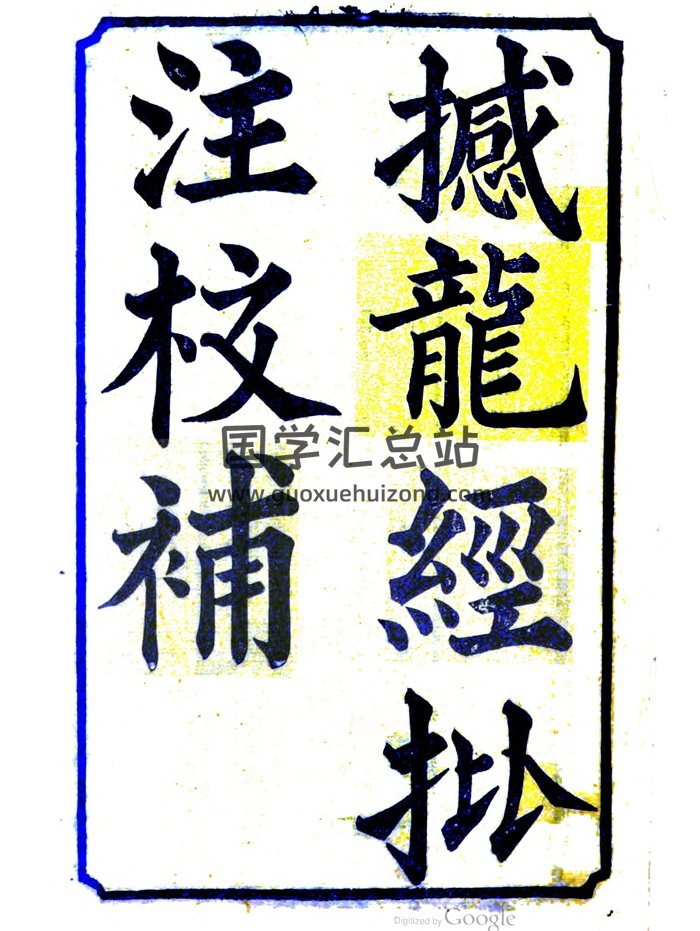 撼龍經批
注校補
国学汇总站
www.guoxuehuizong.com
Digitized by Google